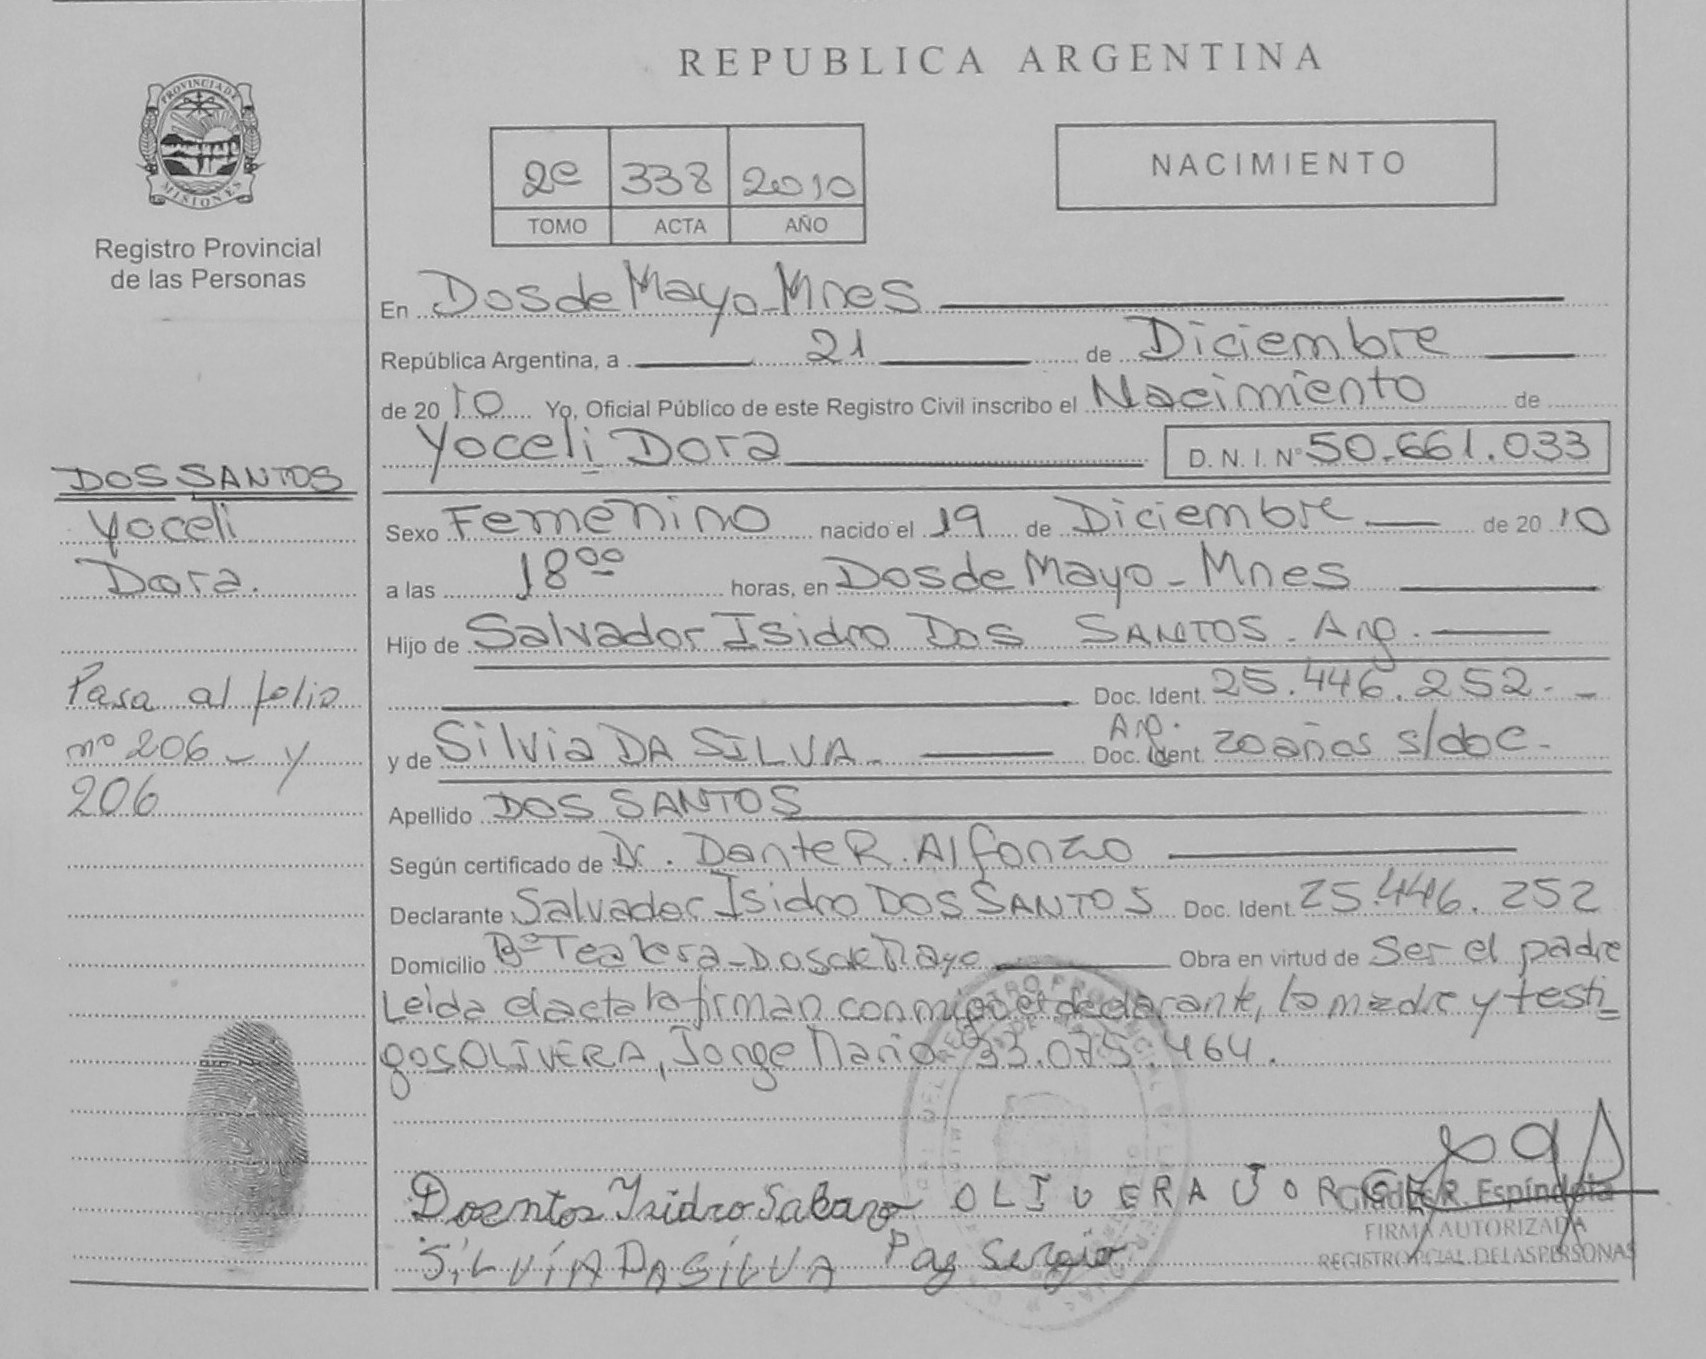 PROVINCIA DE
MISIONES
Registro Provincial
de las Personas
DOS SANTOS
Yoceli
Dora.
Pasa al folio
nº 206 - y
206
REPUBLICA ARGENTINA
2º 338 2010
TOMO ACTA AÑO
NACIMIENTO
En Dos de Mayo - Mnes
República Argentina, a 21 de Diciembre
de 2010 Yo, Oficial Público de este Registro Civil inscribo el Nacimiento de
Yoceli Dora D. N. I. Nº 50.661.033
Sexo Femenino nacido el 19 de Diciembre de 2010
a las 18ºº horas, en Dos de Mayo - Mnes
Hijo de Salvador Isidro Dos SANTOS. Arg.
Doc. Ident. 25.446.252.-
Arg.
y de Silvia DA SILVA. Doc. Ident. 20 años s/doc.
Apellido DOS SANTOS
Según certificado de Dr. Dante R. Alfonzo
Declarante Salvador Isidro DOS SANTOS Doc. Ident. 25.446.252
Domicilio Bº Tealera - Dos de Mayo Obra en virtud de Ser el padre
Leida el acta la firman conmigo el declarante, la madre y testi
gos OLIVERA, Jorge Mario 33.075.464.
Dosantos Isidro OLIVERA JORGE
Gladis R. Espíndola
FIRMA AUTORIZADA
SILVIA DA SILVA Sergio
REGISTRO PCIAL. DE LAS PERSONAS